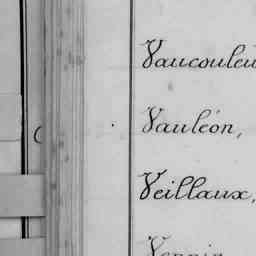 Vaucouleu
Vauléon,
Veillaux,